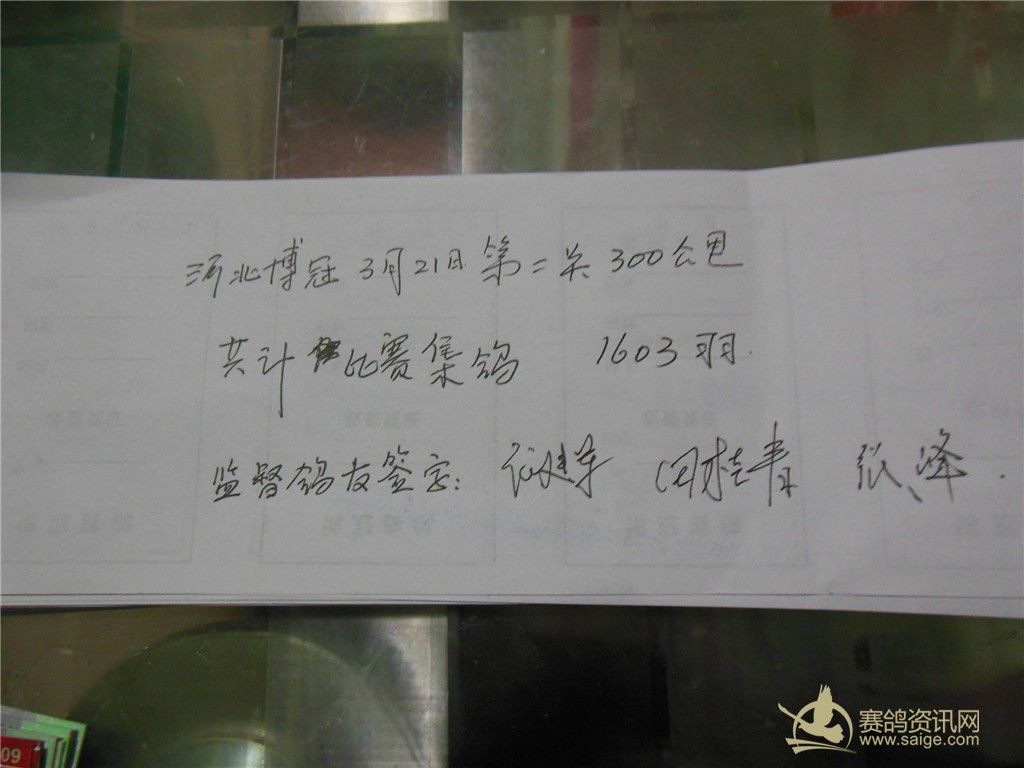 河北博冠 3月21日 第二关 300公里
共计 比赛集鸽 1603羽.
监督鸽友签字: 张建车 田桂青 张泽.
09
赛鸽资讯网
www.saige.com